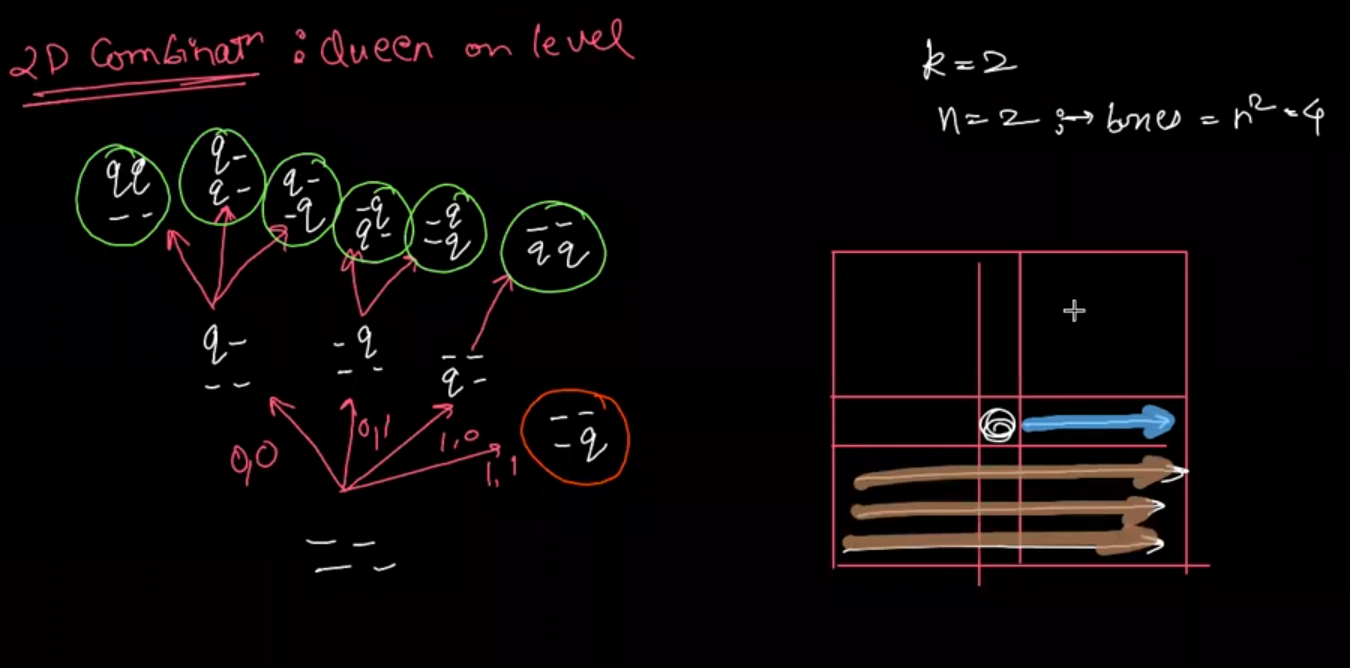 2D Combinatn : Queen on level
k=2
n=2 ;→ boxes = n²=4
qq
--
q-
q-
q-
-q
-q
q-
-q
-q
--
qq
q-
--
-q
--
--
q-
--
-q
0,0
0,1
1,0
1,1
--
--